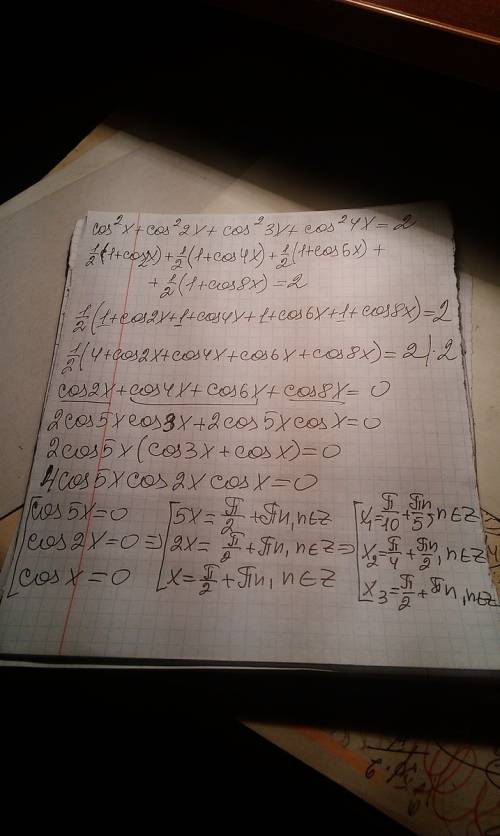 cos²x + cos²2x + cos²3x + cos²4x = 2
½(1+cos2x) + ½(1+cos4x) + ½(1+cos6x) +
+ ½(1+cos8x) = 2
½(1+cos2x+1+cos4x+1+cos6x+1+cos8x) = 2
½(4+cos2x+cos4x+cos6x+cos8x) = 2 | ·2
cos2x + cos4x + cos6x + cos8x = 0
2cos5x cos3x + 2cos5x cosx = 0
2cos5x (cos3x + cosx) = 0
4cos5x cos2x cosx = 0
[cos5x = 0 [5x = π/2 + πn, n∈Z [x₁ = π/10 + πn/5, n∈Z
cos2x = 0 ⇒ 2x = π/2 + πn, n∈Z ⇒ x₂ = π/4 + πn/2, n∈Z
cosx = 0 x = π/2 + πn, n∈Z x₃ = π/2 + πn, n∈Z